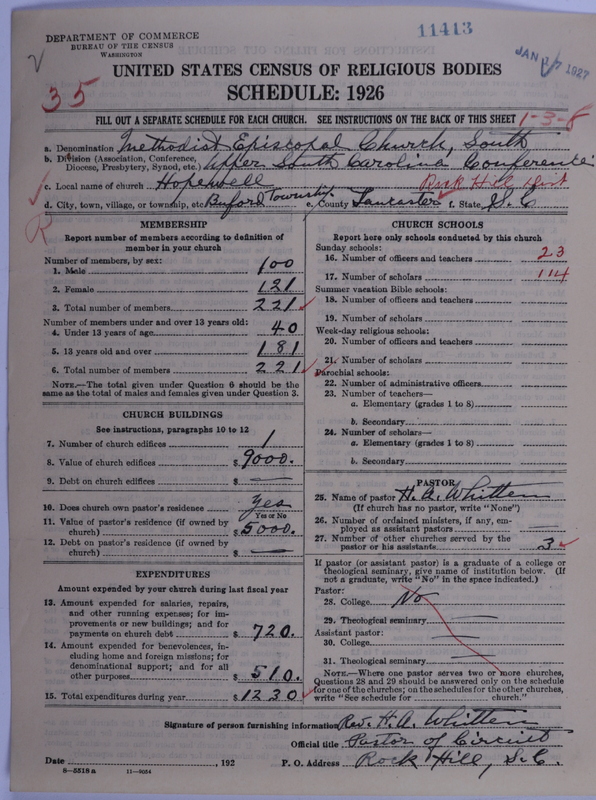 11413
DEPARTMENT OF COMMERCE
BUREAU OF THE CENSUS
WASHINGTON
JAN 1927
UNITED STATES CENSUS OF RELIGIOUS BODIES
35
SCHEDULE: 1926
FILL OUT A SEPARATE SCHEDULE FOR EACH CHURCH. SEE INSTRUCTIONS ON THE BACK OF THIS SHEET 1-3-8
a. Denomination Methodist Episcopal Church, South
b. Division (Association, Conference, Diocese, Presbytery, Synod, etc.) Upper South Carolina Conference
c. Local name of church Hopewell Rock Hill Dist
d. City, town, village, or township, etc Buford Township e. County Lancaster f. State S.C
MEMBERSHIP
Report number of members according to definition of
member in your church
Number of members, by sex:
1. Male 100
2. Female 121
3. Total number of members 221
Number of members under and over 13 years old:
4. Under 13 years of age 40
5. 13 years old and over 181
6. Total number of members 221
NOTE.—The total given under Question 6 should be the
same as the total of males and females given under Question 3.
CHURCH BUILDINGS
See instructions, paragraphs 10 to 12
7. Number of church edifices 1
8. Value of church edifices $ 9000.
9. Debt on church edifices $ —
10. Does church own pastor's residence yes
Yes or No
11. Value of pastor's residence (if owned by
church) $ 5000.
12. Debt on pastor's residence (if owned by
church) $ —
EXPENDITURES
Amount expended by your church during last fiscal year
13. Amount expended for salaries, repairs,
and other running expenses; for im-
provements or new buildings; and for
payments on church debt $ 720.
14. Amount expended for benevolences, in-
cluding home and foreign missions; for
denominational support; and for all
other purposes $ 510.
15. Total expenditures during year $ 1230
CHURCH SCHOOLS
Report here only schools conducted by this church
Sunday schools:
16. Number of officers and teachers 23
17. Number of scholars 114
Summer vacation Bible schools:
18. Number of officers and teachers
19. Number of scholars
Week-day religious schools:
20. Number of officers and teachers
21. Number of scholars
Parochial schools:
22. Number of administrative officers
23. Number of teachers—
a. Elementary (grades 1 to 8)
b. Secondary
24. Number of scholars—
a. Elementary (grades 1 to 8)
b. Secondary
PASTOR
25. Name of pastor H. A. Whitten
(If church has no pastor, write "None")
26. Number of ordained ministers, if any, em-
ployed as assistant pastors —
27. Number of other churches served by the
pastor or his assistants 3
If pastor (or assistant pastor) is a graduate of a college or
theological seminary, give name of institution below. (If
not a graduate, write "No" in the space indicated.)
Pastor:
28. College No
29. Theological seminary —
Assistant pastor:
30. College —
31. Theological seminary —
NOTE.—Where one pastor serves two or more churches,
Questions 28 and 29 should be answered only on the schedule
for one of the churches; on the schedules for the other churches,
write "See schedule for church."
Signature of person furnishing information Rev. H. A. Whitten
Official title Pastor of Circuit
Date , 192 P. O. Address Rock Hill, S.C.
8-5518 a 11-9054